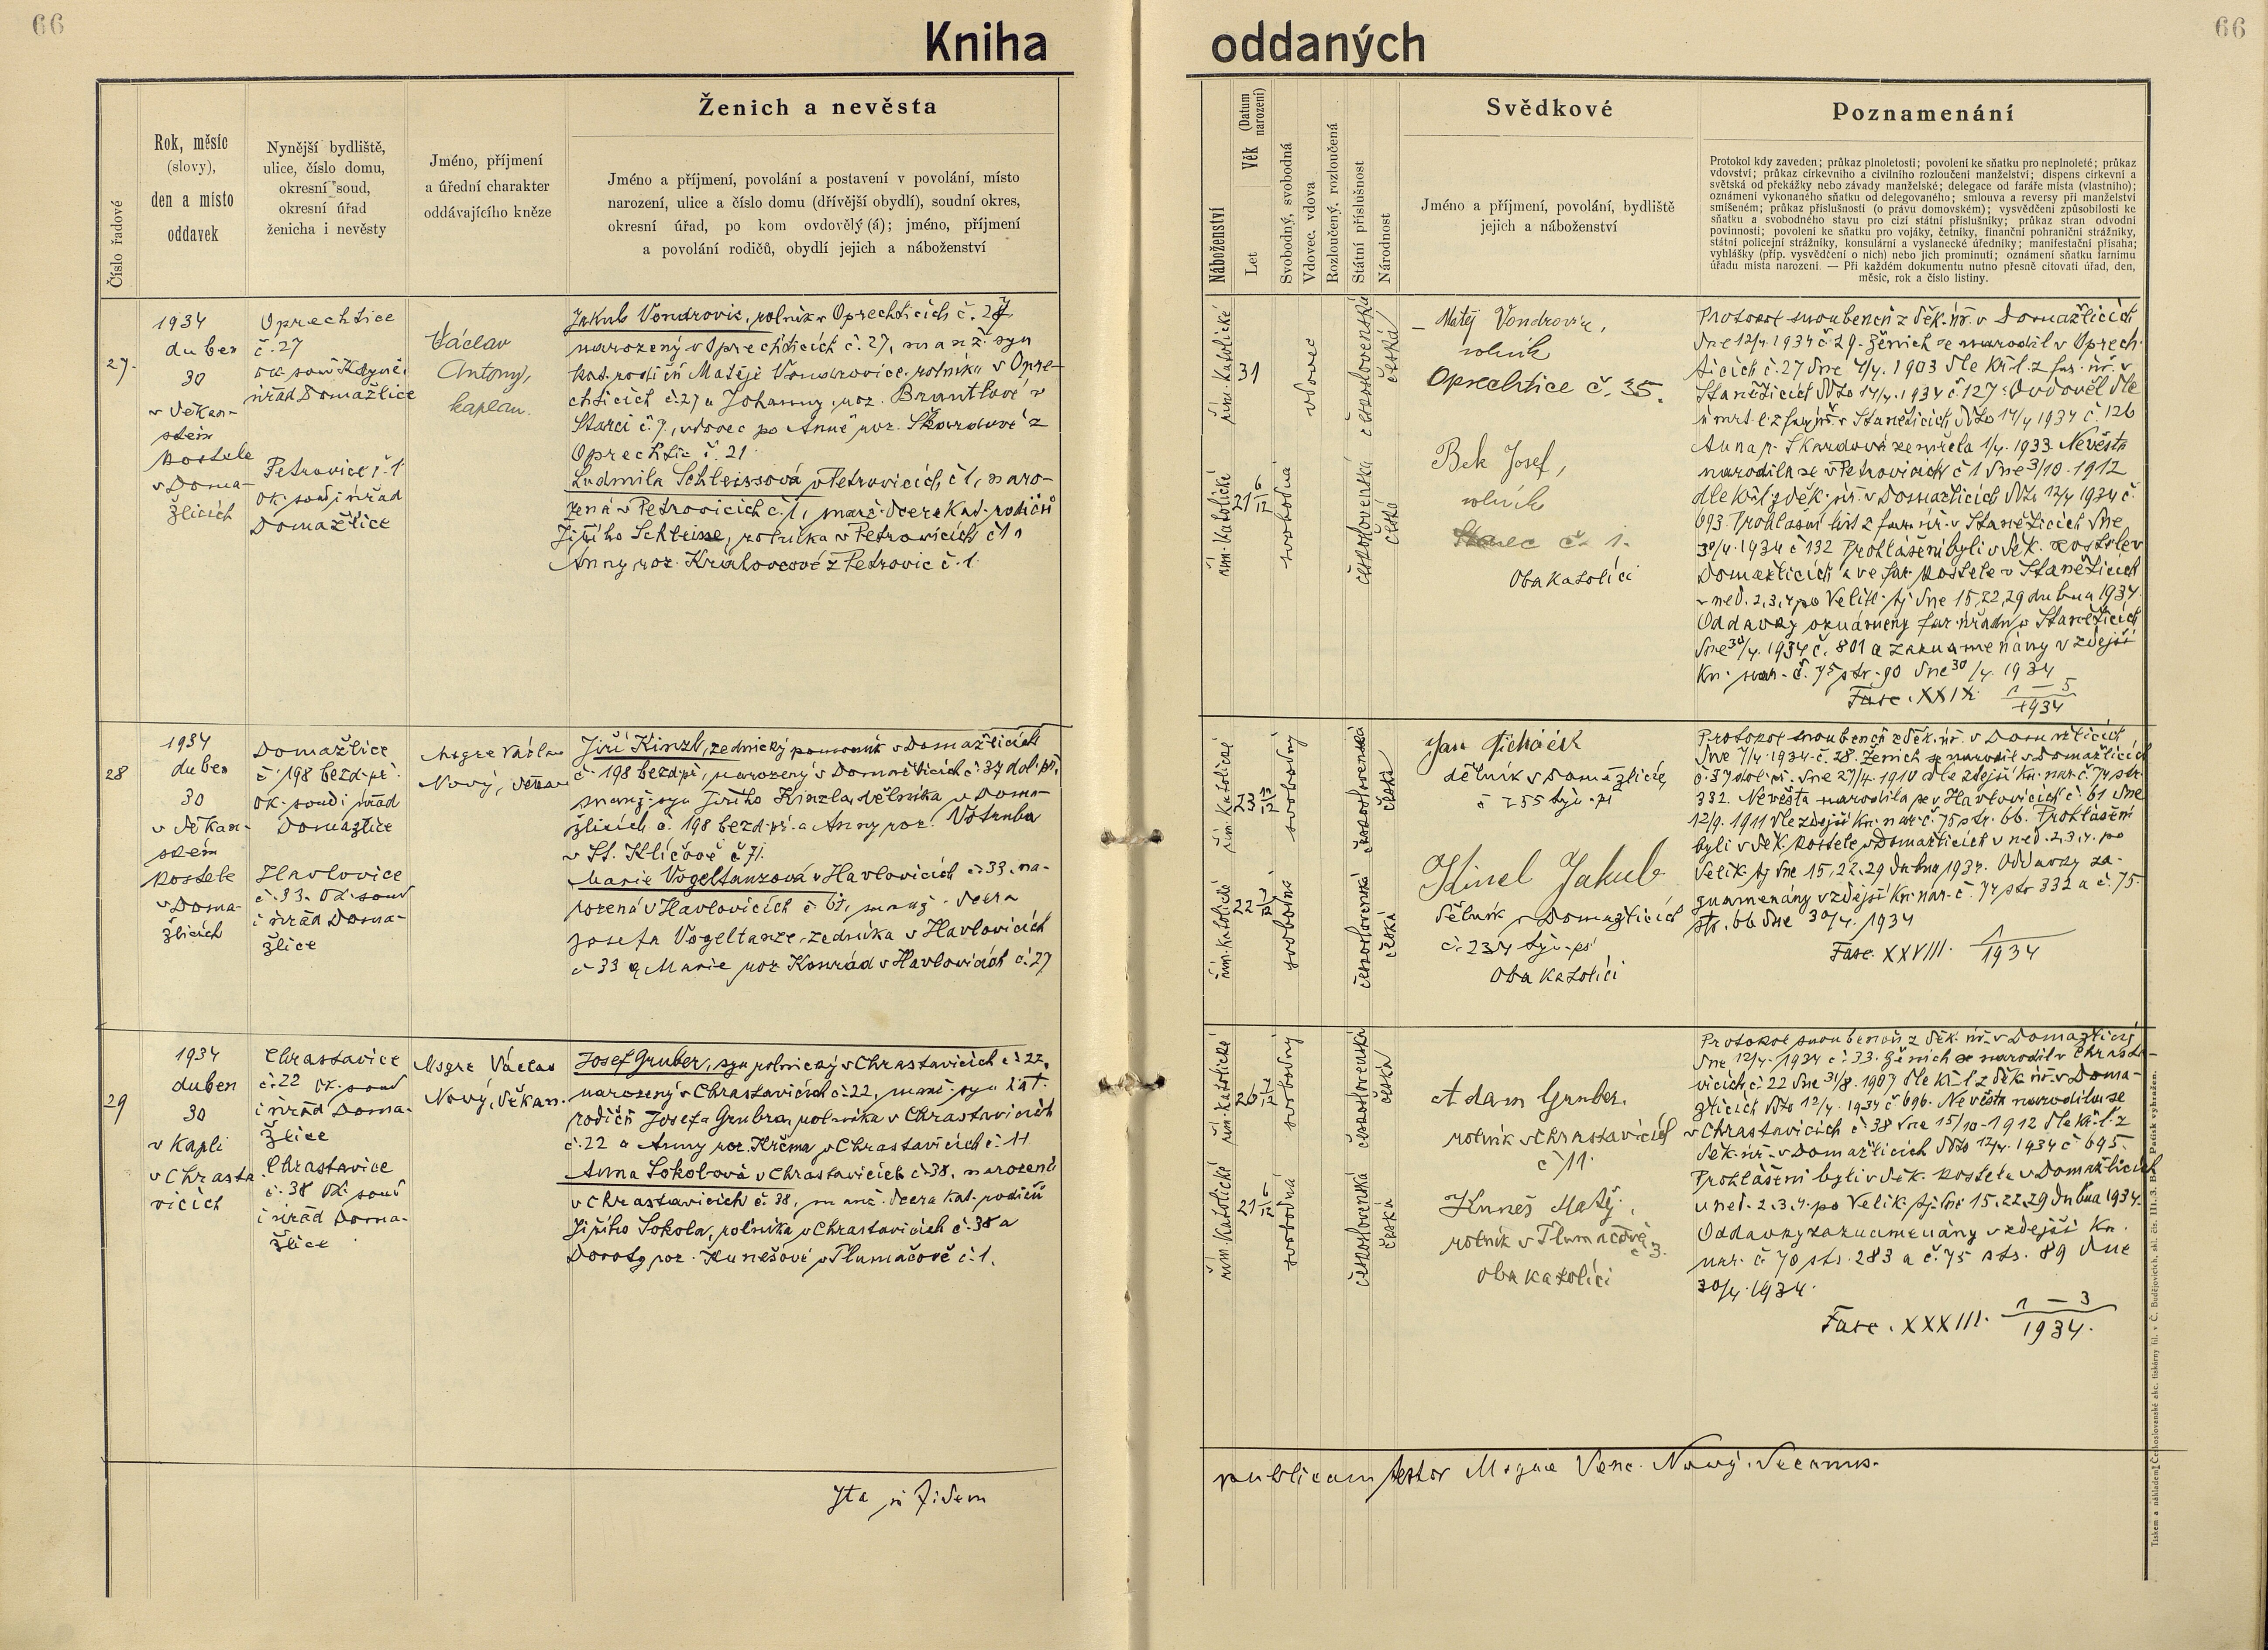 66
66
Kniha oddaných
Číslo řadové
Rok, měsíc
(slovy),
den a místo
oddavek
Nynější bydliště,
ulice, číslo domu,
okresní soud,
okresní úřad
ženicha i nevěsty
Jméno, příjmení
a úřední charakter
oddávajícího kněze
Ženich a nevěsta
Jméno a příjmení, povolání a postavení v povolání, místo
narození, ulice a číslo domu (dřívější obydlí), soudní okres,
okresní úřad, po kom ovdovělý (á); jméno, příjmení
a povolání rodičů, obydlí jejich a náboženství
Náboženství
Let
Věk (Datum narození)
Svobodný, svobodná
Vdovec, vdova
Rozloučený, rozloučená
Státní příslušnost
Národnost
Svědkové
Jméno a příjmení, povolání, bydliště
jejich a náboženství
Poznamenání
Protokol kdy zaveden; průkaz plnoletosti; povolení ke sňatku pro neplnoleté; průkaz
vdovství; průkaz církevního a civilního rozloučení manželství; dispens církevní a
světská od překážky nebo závady manželské; delegace od faráře místa (vlastního);
oznámení vykonaného sňatku od delegovaného; smlouva a reversy při manželství
smíšeném; průkaz příslušnosti (o právu domovském); vysvědčení způsobilosti ke
sňatku a svobodného stavu pro cizí státní příslušníky; průkaz stran odvodní
povinnosti; povolení ke sňatku pro vojáky, četníky, finanční pohraniční strážníky,
státní policejní strážníky, konsulární a vyslanecké úředníky; manifestační přísaha;
vyhlášky (příp. vysvědčení o nich) nebo jich prominutí; oznámení sňatku farnímu
úřadu místa narození. — Při každém dokumentu nutno přesně citovati úřad, den,
měsíc, rok a číslo listiny.
27.
1934
duben
30
v děkan-
ském
kostele
v Doma-
žlicích
Oprechtice
č. 27
ok. soud Kdyně i
úřad Domažlice
Petrovice č. 1
ok. soud i úřad
Domažlice
Václav
Antony,
kaplan.
Jakub Vondrovic, rolník v Oprechticích č. 27,
narozený v Oprechticích č. 27, manž. syn
kat. rodičů Matěje Vondrovice, rolníka v Opre-
chticích č. 27 a Johanny, roz. Brantlové v
Starci č. 7, vdovec po Anně roz. Skordové z
Oprechtic č. 21.
Ludmila Schleissová v Petrovicích č 1, naro-
zená v Petrovicích č. 1, manž. dcera kat. rodičů
Jiřího Schleisse, rolníka v Petrovicích č 1 a
Anny roz. Královcové z Petrovic č. 1.
řím. katolické
31
vdovec
československá
česká
řím. katolické
21 6/12
svobodná
československá
česká
Matěj Vondrovic,
rolník
Oprechtice č. 35.
Bek Josef,
rolník
č. 1.
Oba katolíci
Protokol snoubenců z děk. úř. v Domažlicích
dne 12/4. 1934 č. 29. Ženich se narodil v Oprech-
ticích č. 27 dne 4/4. 1903 dle kř. l. z far. úř. v
Stanětících dto 14/4. 1934 č. 127. Ovdověl dle
úmrt. l. z far. úř. v Stanětících dto 14/4 1934 č. 126
Anna r. Skordová zemřela 1/4. 1933. Nevěsta
narodila se v Petrovicích č 1 dne 3/10. 1912
dle kř. l. z děk. úř. v Domažlicích dto 12/4 1934 č.
693. Prohlašní list z far. úř. v Stanětících dne
30/4. 1934 č 132 Prohlášeni byli v děk. kostele v
Domažlicích a ve far. kostele v Stanětících
v ned. 2, 3, 4 po Velik. tj. dne 15, 22, 29 dubna 1934.
Oddavky oznámeny far. úřadu v Stanětících
dne 30/4. 1934 č. 801 a zaznamenány v zdejší
kn. nar. č. 75 str. 90 dne 30/4. 1934
Fasc. XXIX. 1 — 5
1934
28
1934
duben
30
v děkan-
ském
kostele
v Doma-
žlicích
Domažlice
č. 198 bezd. př.
ok. soud i úřad
Domažlice
Havlovice
č. 33. Ok. soud
i úřad Doma-
žlice
Msgre Václav
Nový, děkan
Jiří Kinzl, zednický pomocník v Domažlicích
č. 198 bezd. př., narozený v Domažlicích č. 37 dol. př.,
manž. syn Jiřího Kinzla, dělníka v Doma-
žlicích č. 198 bezd. př. a Anny roz. Votruba
v St. Klíčově č 71.
Marie Vogeltanzová v Havlovicích č. 33, na-
rozená v Havlovicích č 61, manž. dcera
Josefa Vogeltanze, zedníka v Havlovicích
č 33 a Marie roz. Konrád v Havlovicích č. 27
řím. katolické
svobodný
československá
česká
řím. katolické
svobodná
československá
česká
Jan
dělník v Domažlicích
č 255 týn. př.
Kincl Jakub
dělník v Domažlicích
č. 234 týn. př.
Oba katolíci
Protokol snoubenců z děk. úř. v Domažlicích
dne 7/4. 1934 č. 28. Ženich se narodil v Domažlicích
č. 37 dol. př. dne 27/4. 1910 dle zdejší kn. nar. č. 74 str.
332. Nevěsta narodila se v Havlovicích č. 61 dne
12/9. 1911 dle zdejší kn. nar. č. 75 str. 66. Prohlášeni
byli v děk. kostele v Domažlicích v ned. 2. 3. 4. po
Velik. tj. dne 15, 22. 29 dubna 1934. Oddavky za-
znamenány v zdejší kn. nar. č. 74 str 332 a č. 75.
str. 66 dne 30/4. 1934
Fasc. XXVIII. 1
1934
29
1934
duben
30
v kapli
v Chrasta-
vicích
Chrastavice
č. 22 ok. soud
i úřad Doma-
žlice
Chrastavice
č. 38 Ok. soud
i úřad Doma-
žlice
Msgre Václav
Nový, děkan.
Josef Gruber, syn rolnický v Chrastavicích č. 22,
narozený v Chrastavicích č. 22, manž. syn kat.
rodičů Josefa Grubra, rolníka v Chrastavicích
č. 22 a Anny roz. Krčma v Chrastavicích č. 11
Anna Sokolová v Chrastavicích č. 38, narozená
v Chrastavicích č. 38, manž. dcera kat. rodičů
Jiřího Sokola, rolníka v Chrastavicích č. 38 a
Doroty roz. Kunešové v Tlumačově č. 1.
řím. katolické
svobodný
československá
česká
řím. katolické
21 6/12
svobodná
československá
česká
Adam Gruber.
rolník v Chrastavicích
č 11.
Kuneš Matěj.
rolník v Tlumačově
č 3.
Oba katolíci
Protokol snoubenců z děk. úř. v Domažlicích
dne 12/4. 1934 č. 33. Ženich se narodil v Chrasta-
vicích č. 22 dne 31/8. 1907 dle kř. l. z děk. úř. v Doma-
žlicích dto 12/4. 1934 č 696. Nevěsta narodila se
v Chrastavicích č. 38 dne 15/10. 1912 dle kř. l. z
děk. úř. v Domažlicích dto 12/4. 1934 č 695.
Prohlášeni byli v děk. kostele v Domažlicích
v ned. 2. 3. 4. po Velik. tj. dne 15. 22. 29 dubna 1934.
Oddavky zaznamenány v zdejší kn.
nar. č 70 str. 283 a č. 75 str. 89 dne
30/4. 1934.
Fasc. XXXIII. 1 — 3
1934.
Ita in fidem publicam testor Msgre Venc. Nový. Decanus.
Tiskem a nákladem Československé akc. tiskárny fil. v Č. Budějovicích, skl. čís. III.3. Patisk vyhražen.